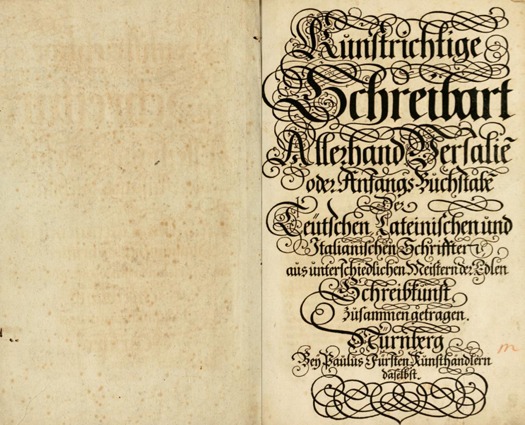 Kunstrichtige
Schreibart
Allerhand Versaliē
oder Anfangs-Buchstabē
Der
Teütschen Lateinischen und
Italianischen Schrifften
aus unterschiedlichen Meistern der Edlen
Schreibkunst
zusammen getragen.
Nürnberg
Bey Paulus Fürsten Kunsthändlern
daselbst.